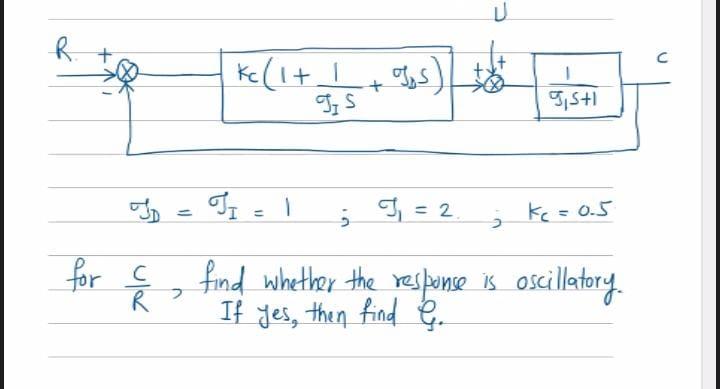 U
R + Kc(1 + 1/τI S + τD S) + + 1/τ1 S+1 C
-
τD = τI = 1 ; τ1 = 2. ; Kc = 0.5
for C/R, find whether the response is oscillatory.
If yes, then find ξ.